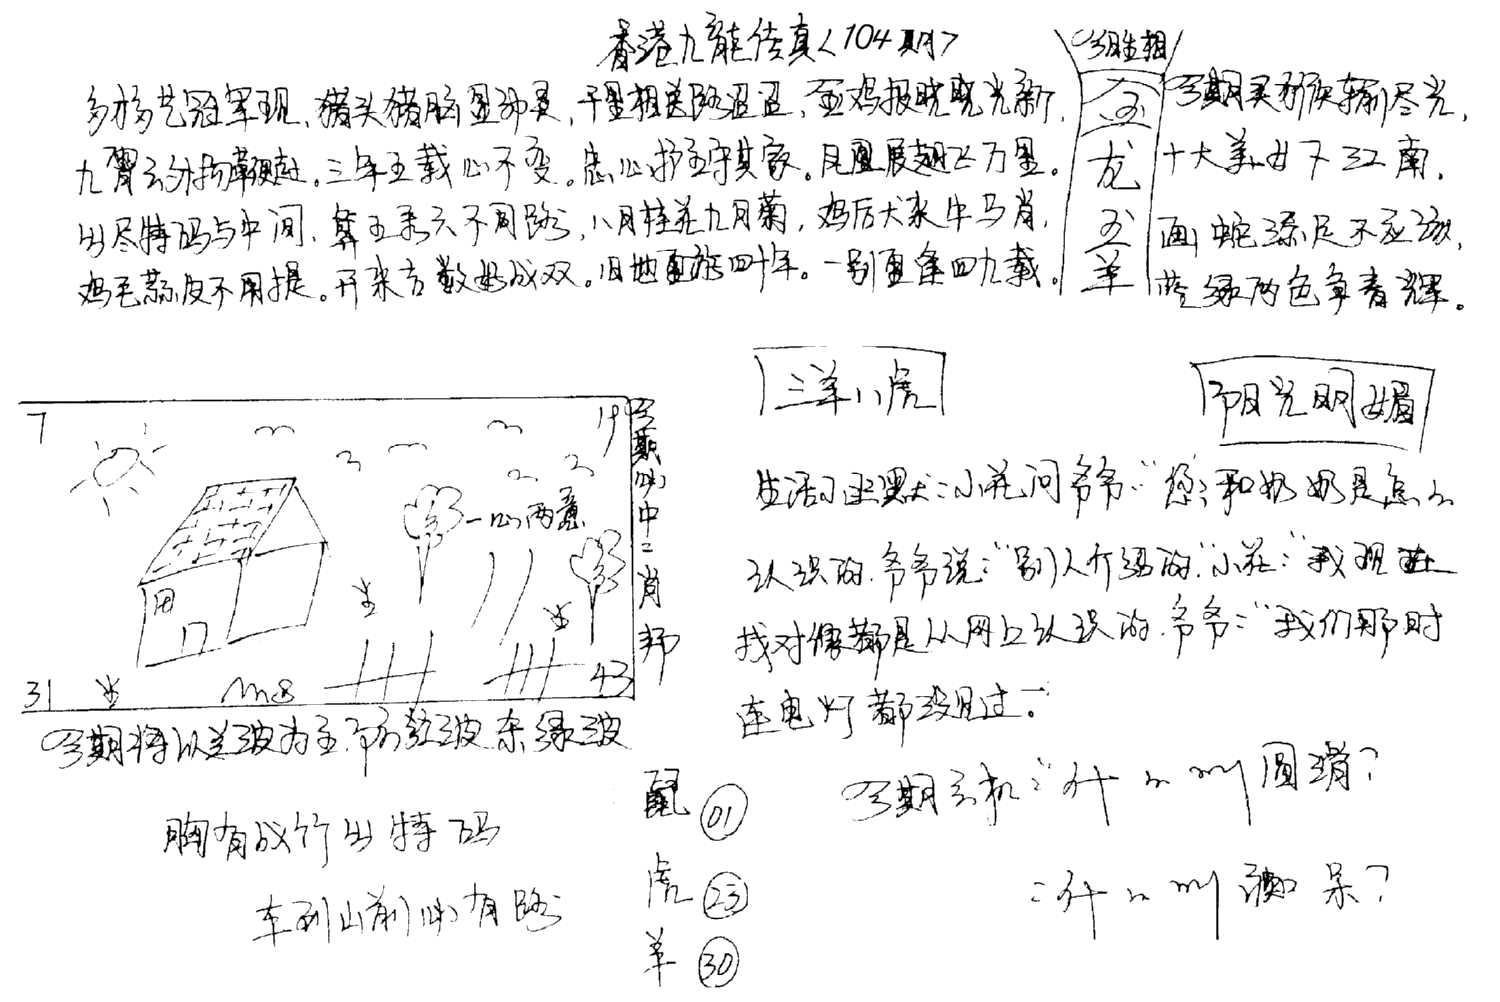 香港九龍传真<104期>
多才多艺冠军现，猪头猪脑显神灵，千里相送路迢迢，金鸡报晓晓光新，
九霄云外扬鞭赶。三年五载心不变。忠心护主守其家。凤凰展翅飞万里。
出尽特码与中间，不同路，八月桂花九月菊，鸡后犬来牛马肖，
鸡毛蒜皮不用提。开来吉数好成双。旧地重游四十年。一别重逢四九载。
今期生相
龙
五
羊
今期买猴输尽光，
十大美女下江南，
画蛇添足不应该，
蓝绿两色争春辉。
三羊八虎
阳光明媚
7
19
31
43
一心两意
m8
今期必中二肖邦
今期特以兰波为主，防红波杂绿波
胸有成竹出特码
车到山前必有路
鼠 01
虎 23
羊 30
生活小幽默：小花问爷爷：“您和奶奶是怎么
认识的，爷爷说：“别人介绍的”小花：“我现在
找对像都是从网上认识的，爷爷：“我们那时
连电灯都没见过。”
今期玄机：什么 圆滑？
：什么 呆？